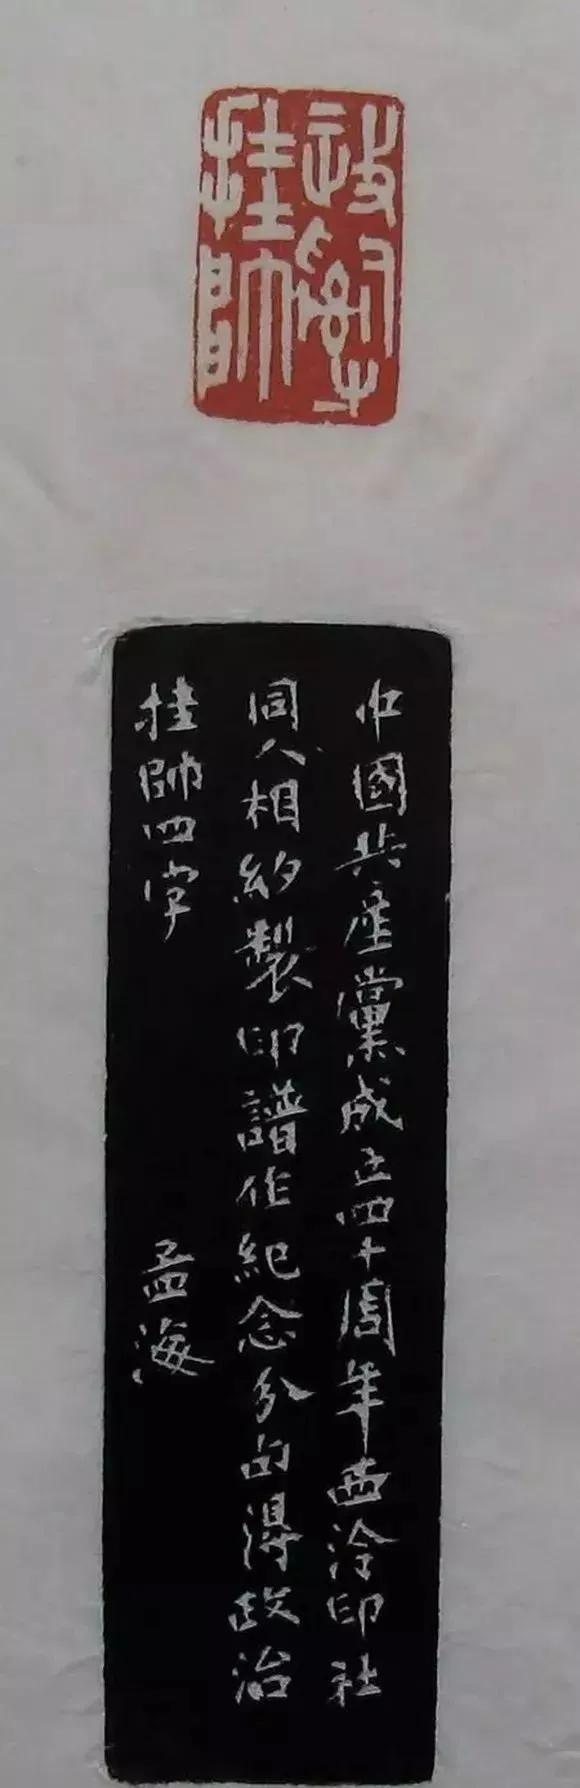 政治
挂帥
中國共產黨成立四十周年西泠印社
同人相約製印譜作紀念分句得政治
挂帥四字 孟海